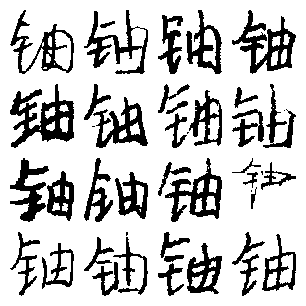 铀铀铀铀
铀铀铀铀
铀铀铀铀
铀铀铀铀